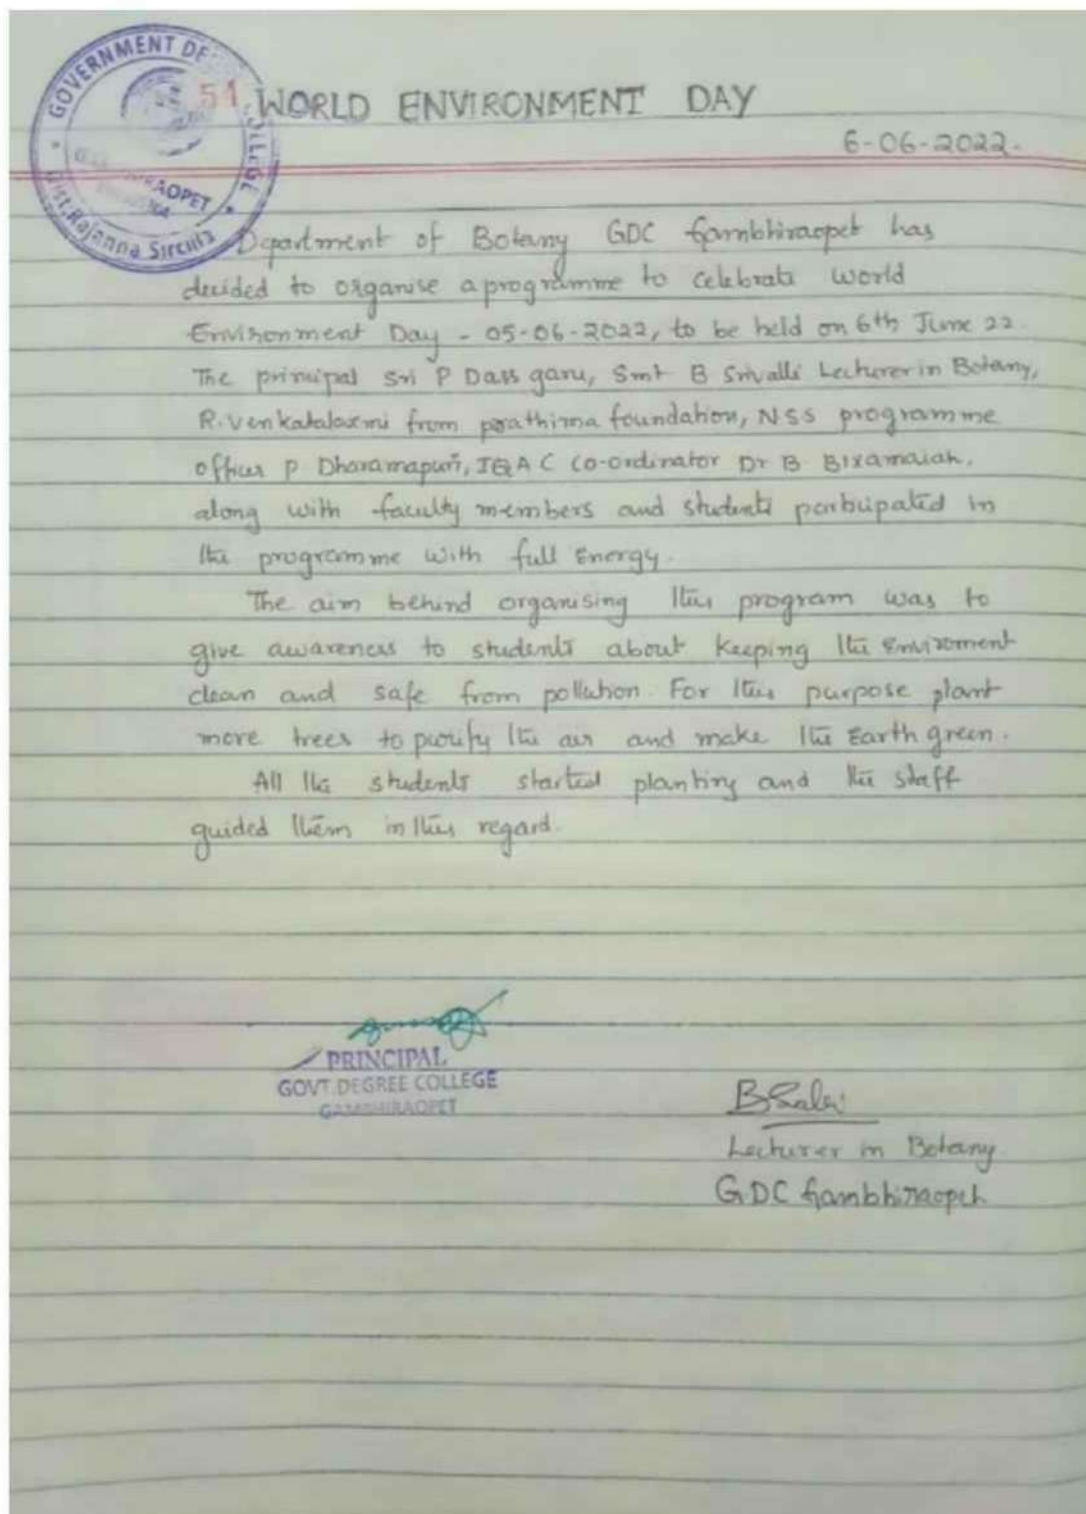 GOVERNMENT DE
COLLEGE
Dist:Rajanna Sircilla
51
WORLD ENVIRONMENT DAY
6-06-2022.
Department of Botany GDC Gambhiraopet has
decided to organise a programme to celebrate world
Environment Day - 05-06-2022, to be held on 6th June 22.
The principal Sri P Dass garu, Smt B Srivalli Lecturer in Botany,
R. Venkatalaxmi from prathima foundation, NSS programme
officer P Dharamapuri, IQAC Co-ordinator Dr B Bixamaiah,
along with faculty members and students participated in
the programme with full Energy.
The aim behind organising this program was to
give awareness to students about keeping the Enviroment
clean and safe from pollution. For this purpose plant
more trees to purify the air and make the Earth green.
All the students started planting and the staff
guided them in this regard.
PRINCIPAL
GOVT.DEGREE COLLEGE
GAMBHIRAOPET
Lecturer in Botany
GDC Gambhiraopet